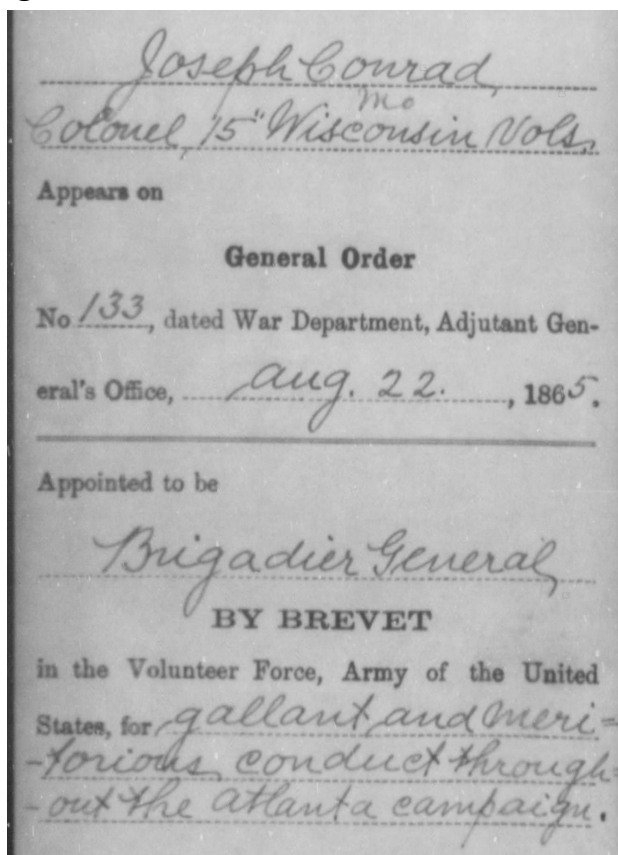 Joseph Conrad,
Mo
Colonel, 15" Wisconsin Vols.
Appears on
General Order
No 133, dated War Department, Adjutant Gen-
eral's Office, Aug. 22. , 1865.
Appointed to be
Brigadier General,
BY BREVET
in the Volunteer Force, Army of the United
States, for gallant and meri-
-torious conduct through-
-out the Atlanta campaign.